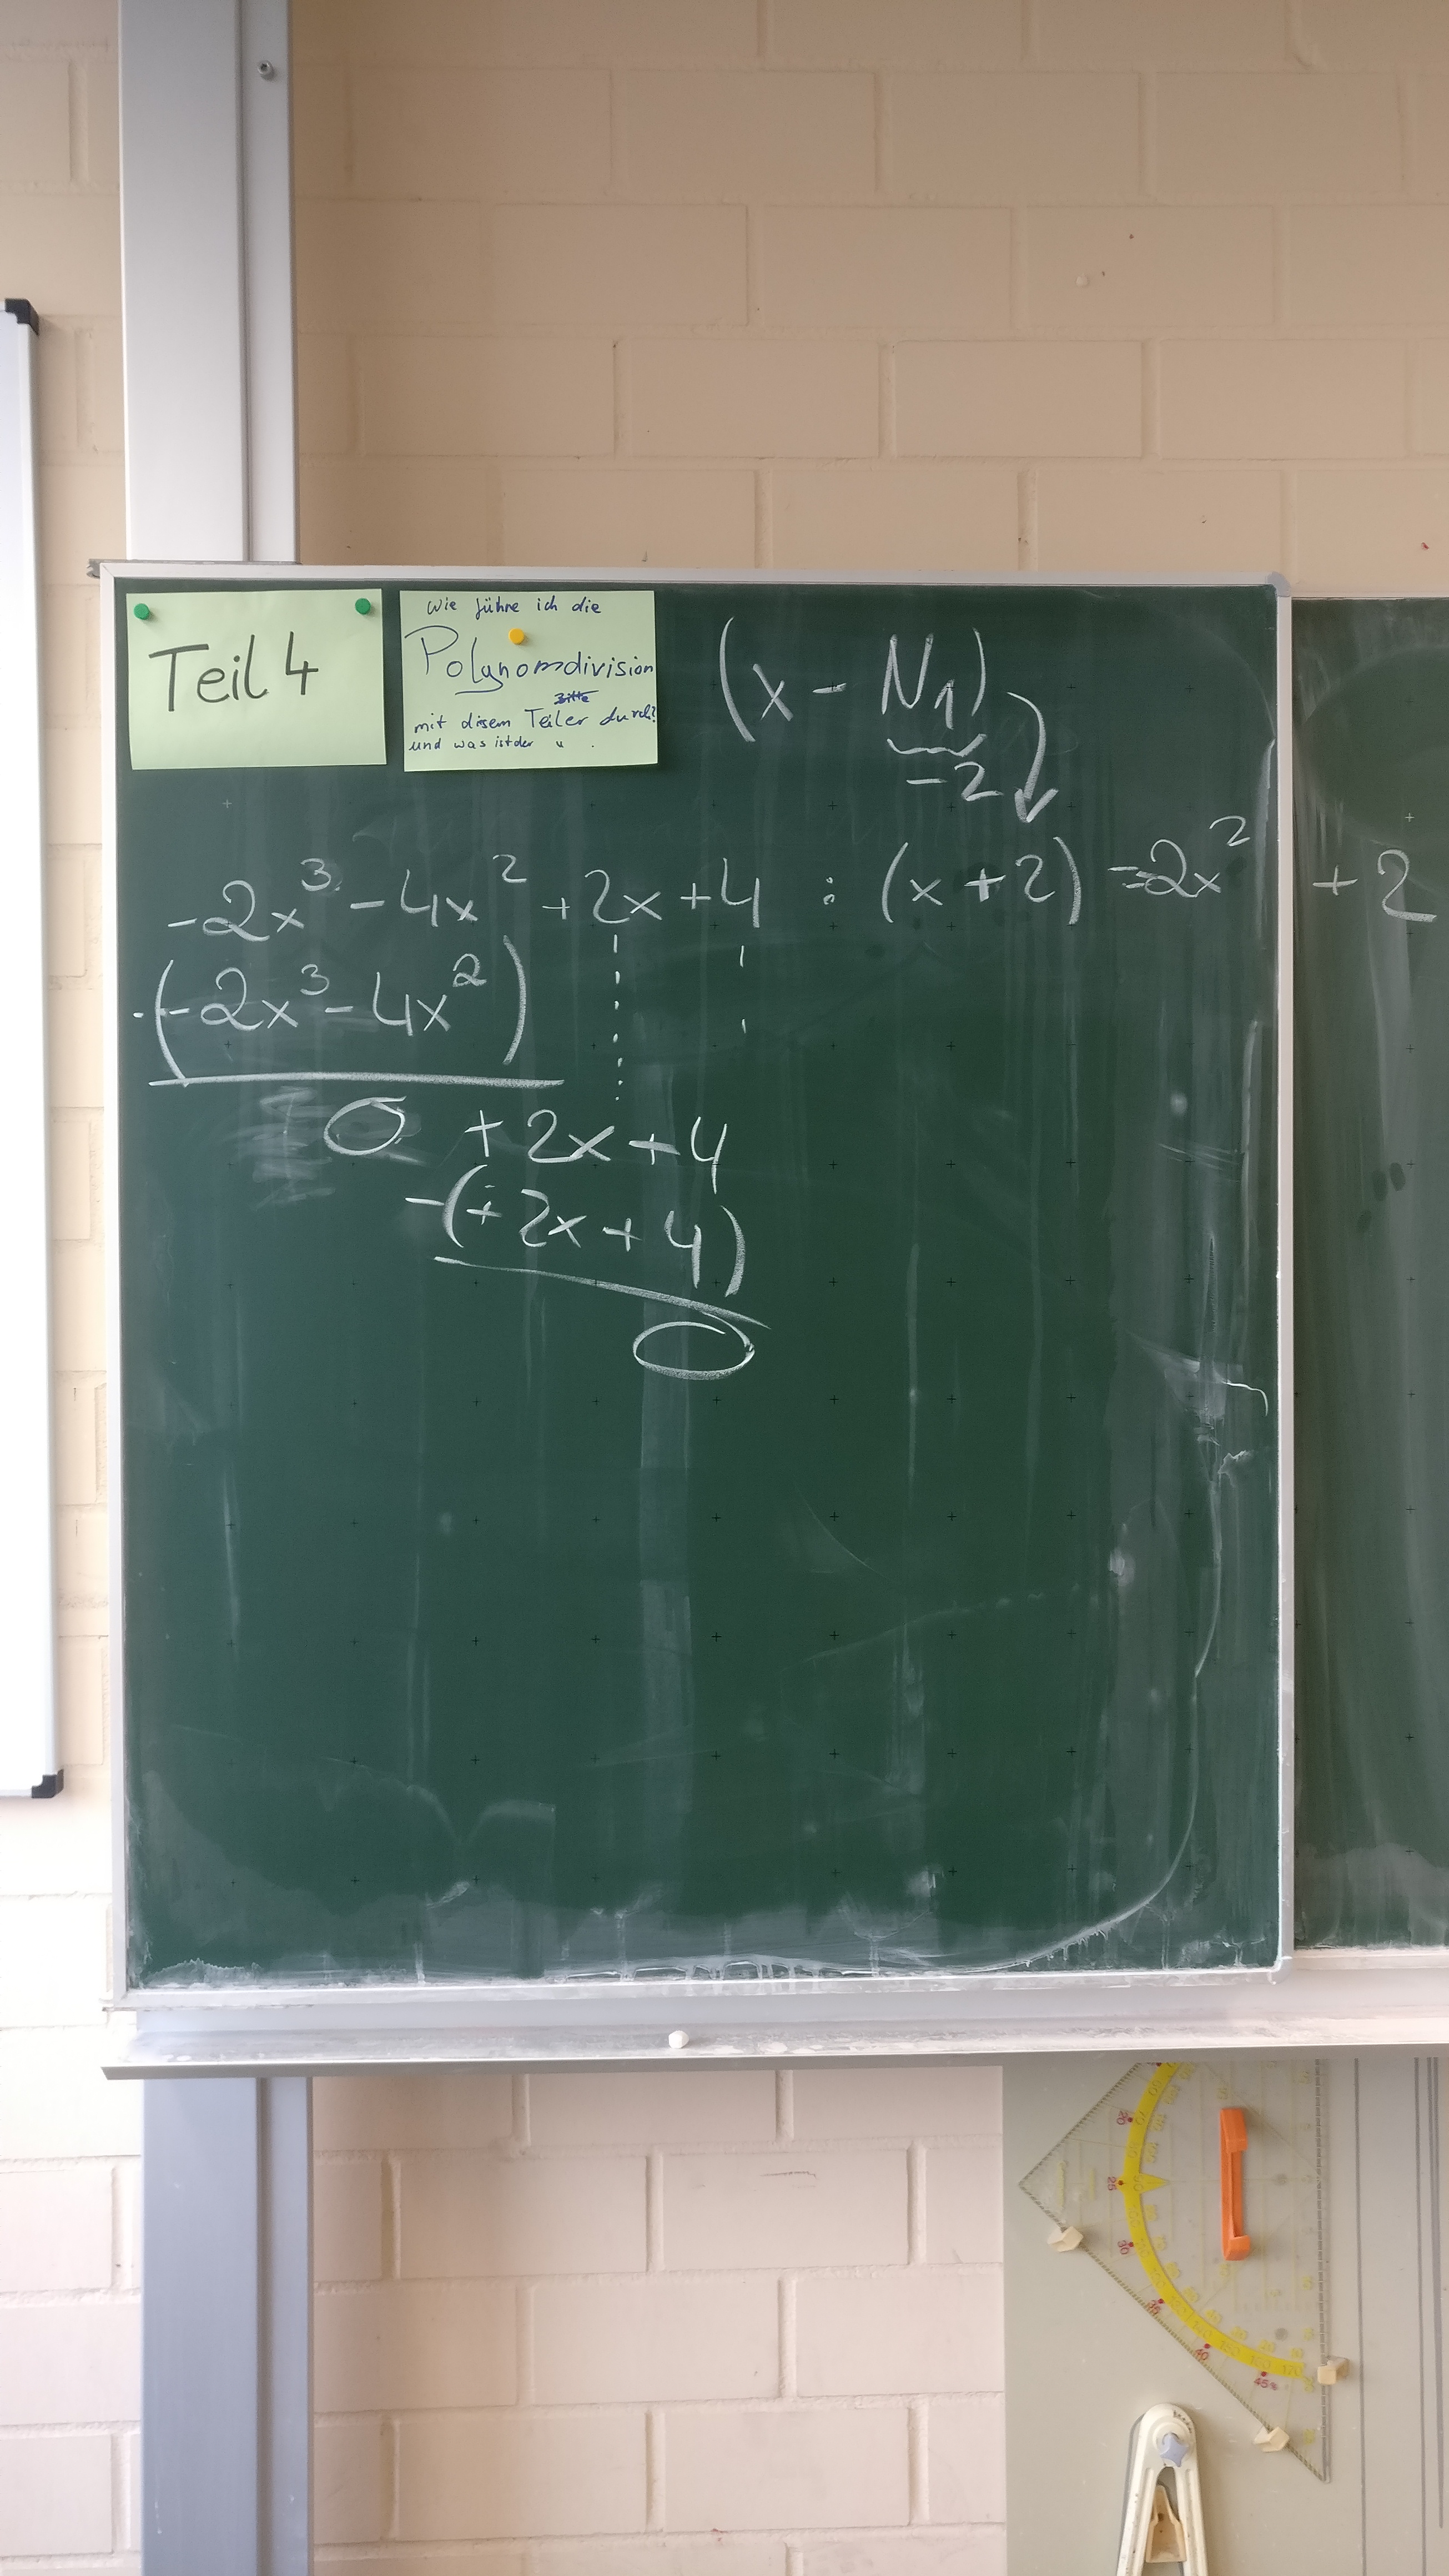 Teil 4
Wie führe ich die
Polynomdivision
Bitte
mit diesem Teiler durch?
und was ist der u .
(x - N₁)
-2
-2x³ - 4x² + 2x + 4 : (x + 2) = -2x² + 2
-(-2x³ - 4x²)
0 + 2x + 4
-(+2x + 4)
0